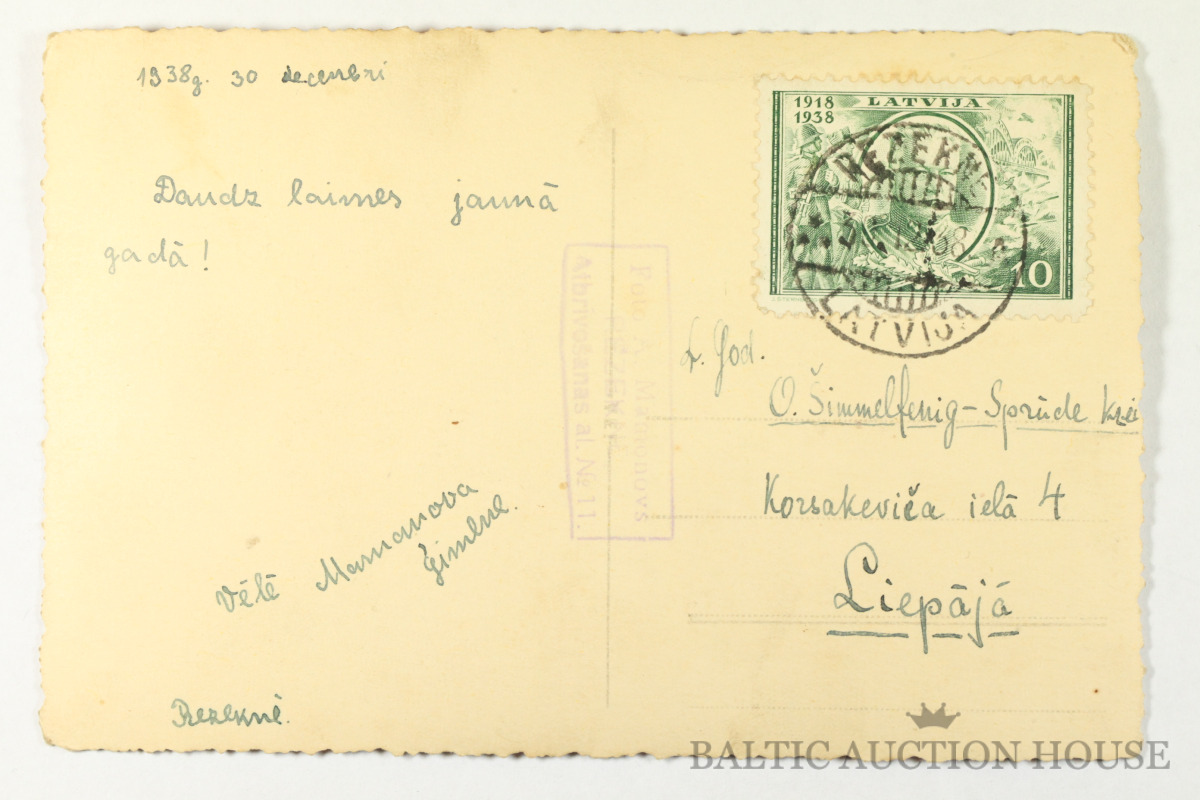 1938g. 30 decembri
Daudz laimes jaunā
gadā!
Vēlē Mamanova
ģimene.
Rezeknē.
Foto A. Mamonovs
RĒZEKNĒ
Atbrīvošanas al. № 11.
1918 LATVIJA
1938
10
REZEKNE
LATVIJA
L. God.
O. Šimmelfenig-Sprūde kzei
Korsakeviča ielā 4
Liepājā
BALTIC AUCTION HOUSE